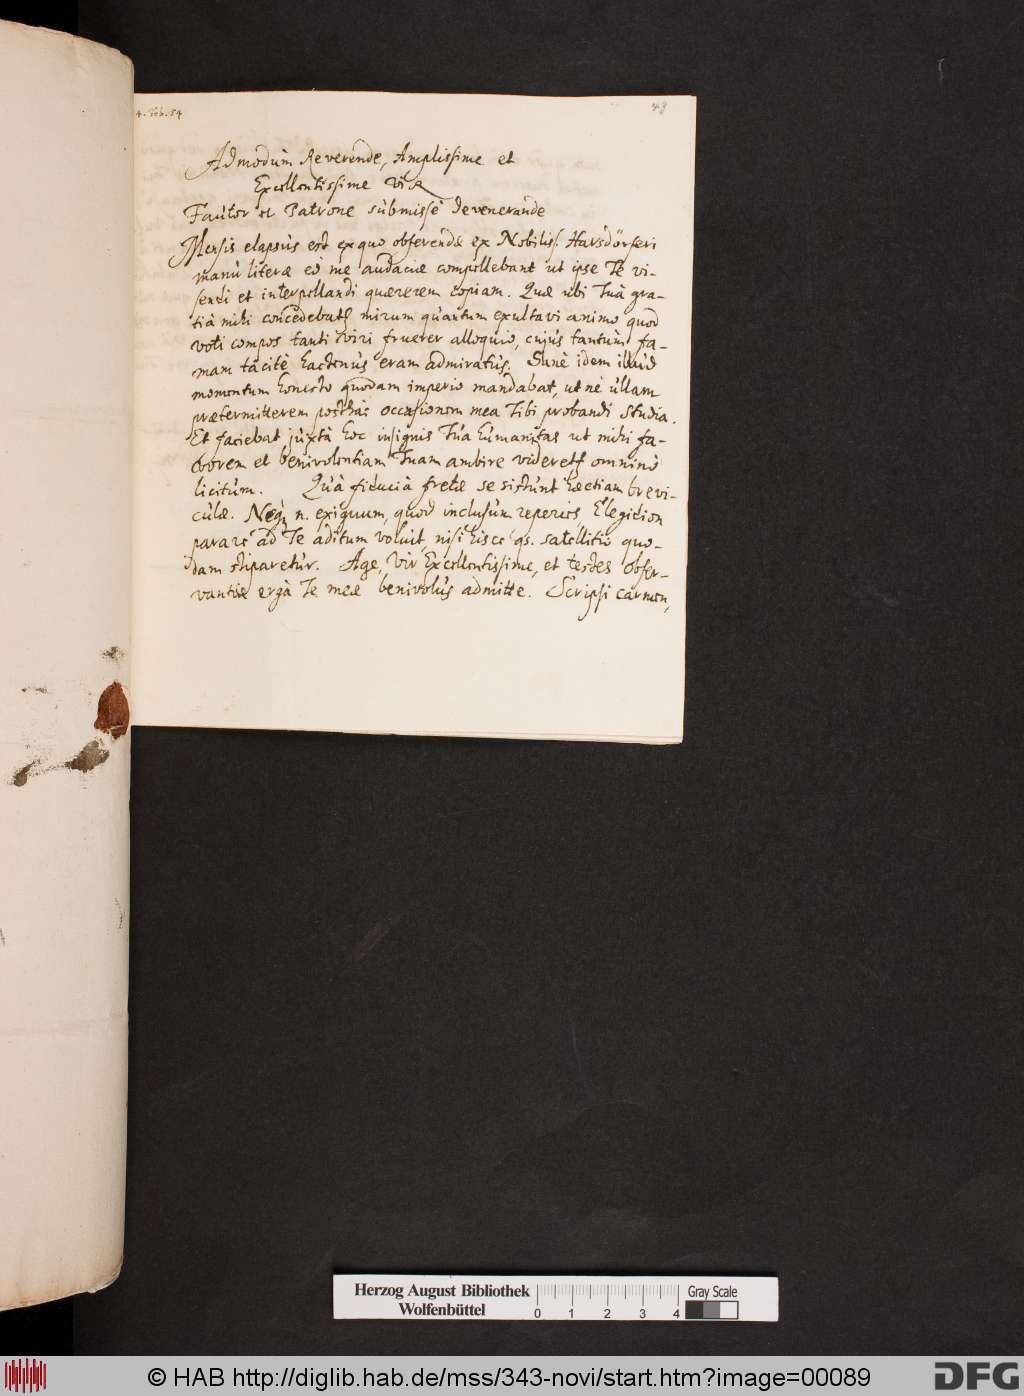 4. Feb. 54
43
Admodùm Reverende, Amplissime et
Excellentissime Vir
Fautor et Patrone submissè devenerande
Mensis elapsus est ex quo observendæ ex Nobiliss: Harsdörferi
manu literæ eò me audaciæ compellebant ut ipse Te vi-
sendi et interpellandi quærerem copiam. Quæ ubi Tuâ gra-
tiâ mihi concedebatur mirum quantum exultavi animo quod
voti compos tanti Viri fruerer alloquio, cujus tantùm fa-
mam tacitè hactenus eram admiratus. Sanè idem illud
momentum honesto quodam imperio mandabat, ut nè ullam
prætermitterem posthàc occasionem mea Tibi probandi studia.
Et faciebat juxtà hoc insignis Tua humanitas ut mihi fa-
vorem et benivolentiam Tuam ambire videretur omninò
licitum. Quâ fiduciâ fretæ se sistunt hæ etiam brevi-
culæ. Neq; n. exiguum, quod inclusum reperies Elegidion
parare ad Te aditum voluit nisi hisce qs. satellitio quo-
dam stiparetur. Age, Vir Excellentissime, et testes obser-
vantiæ ergà Te meæ benivolus admitte. Scripsi carmen,
Herzog August Bibliothek
Wolfenbüttel
0 1 2 3 4
Gray Scale
© HAB http://diglib.hab.de/mss/343-novi/start.htm?image=00089
DFG